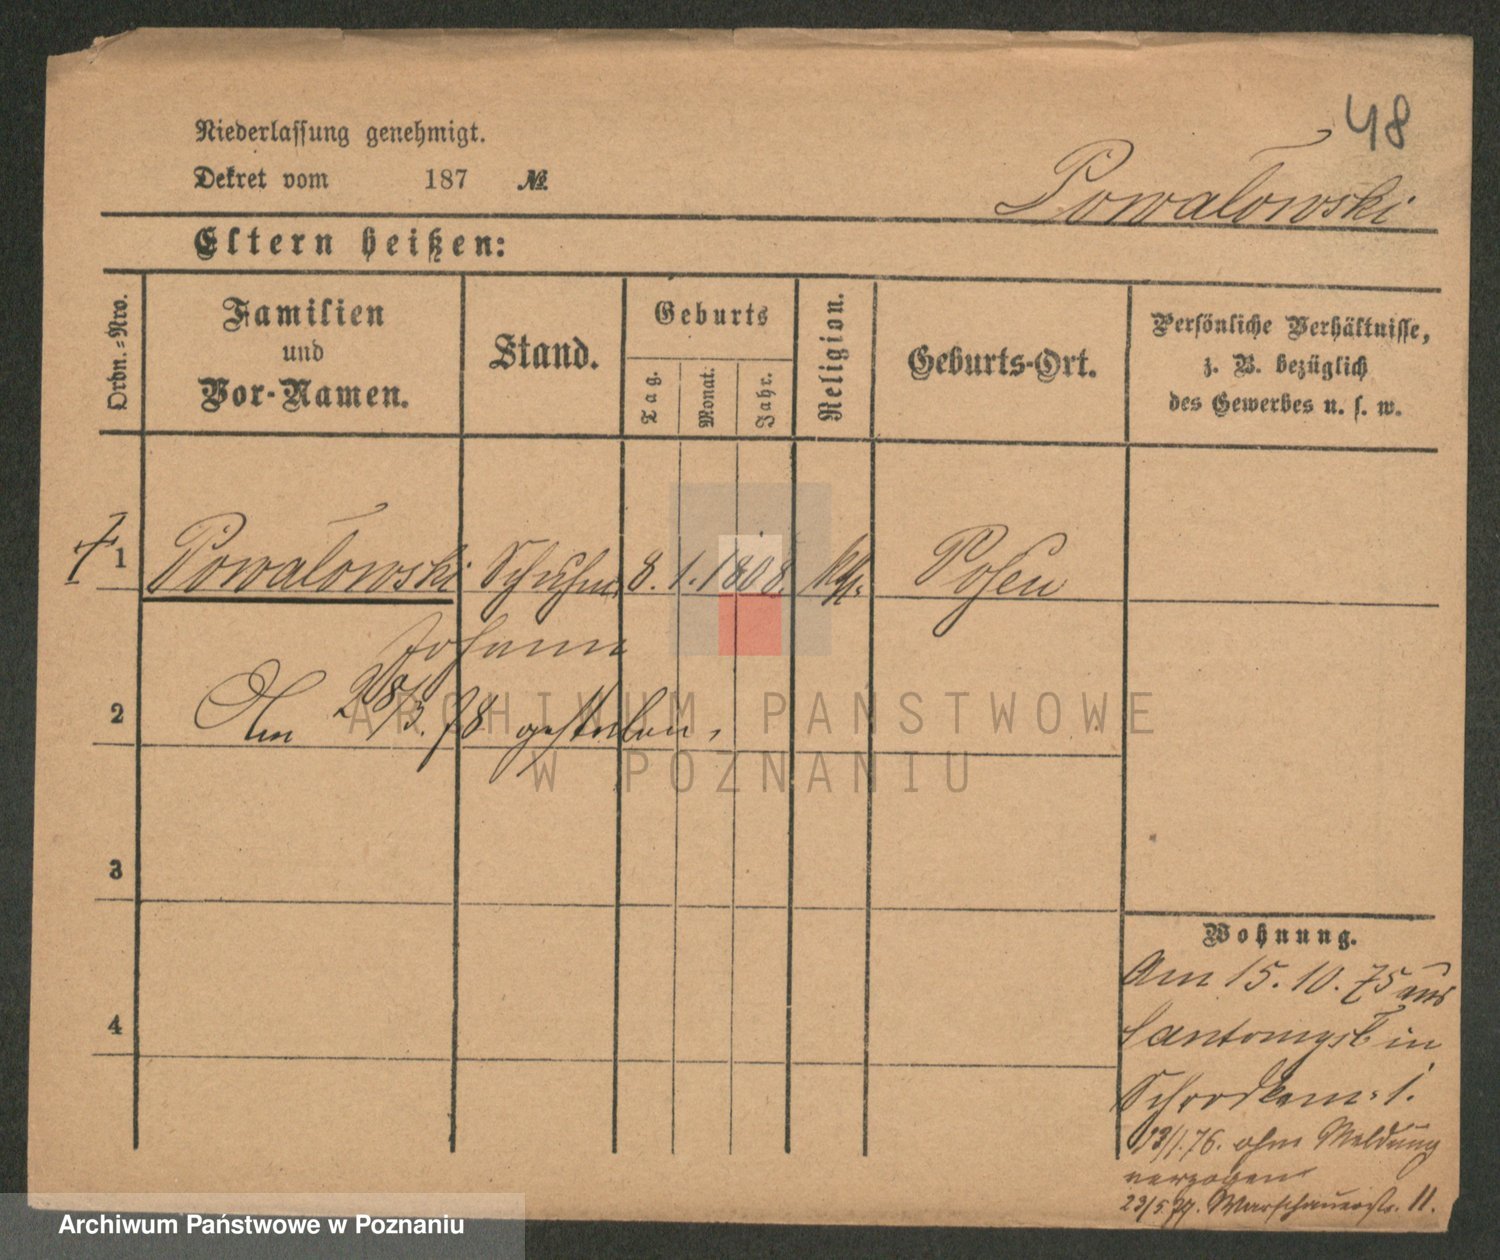 48
Niederlassung genehmigt.
Dekret vom 187 №
Powałowski
Eltern heißen:
Ordn.-Nro.
Familien
und
Vor-Namen.
Stand.
Geburts
Tag.
Monat.
Jahr.
Religion.
Geburts-Ort.
Persönliche Verhältnisse,
z. B. bezüglich
des Gewerbes u. s. w.
1 Powałowski Schuhm. 8. 1. 1808. kth. Posen
Johann
2 Am 28/3. 78 gestorben.
3
4
Wohnung.
Am 15. 10. 75 aus
Santomysl in
Schrodkam. 1.
13/1. 76. ohne Meldung
verzogen
23/5 77. Warschauerstr. 11.
ARCHIWUM PAŃSTWOWE
W POZNANIU
Archiwum Państwowe w Poznaniu